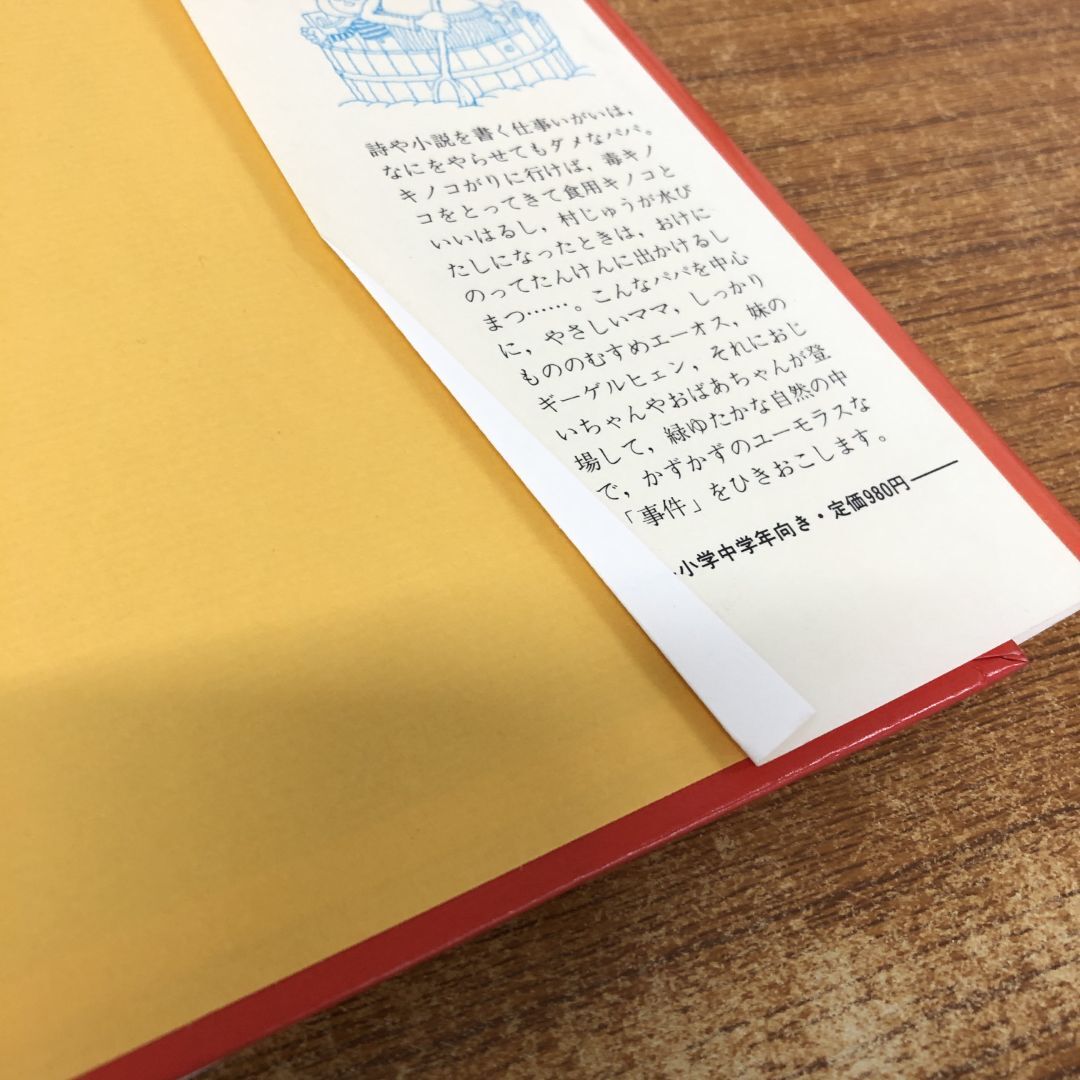 詩や小説を書く仕事いがいは,
なにをやらせてもダメなパパ。
キノコがりに行けば, 毒キノ
コをとってきて食用キノコと
いいはるし, 村じゅうが水び
たしになったときは, おけに
のってたんけんに出かけるし
まつ……。こんなパパを中心
に, やさしいママ, しっかり
もののむすめエーオス, 妹の
ギーゲルヒェン, それにおじ
いちゃんやおばあちゃんが登
場して, 緑ゆたかな自然の中
で, かずかずのユーモラスな
「事件」をひきおこします。
小学中学年向き・定価980円